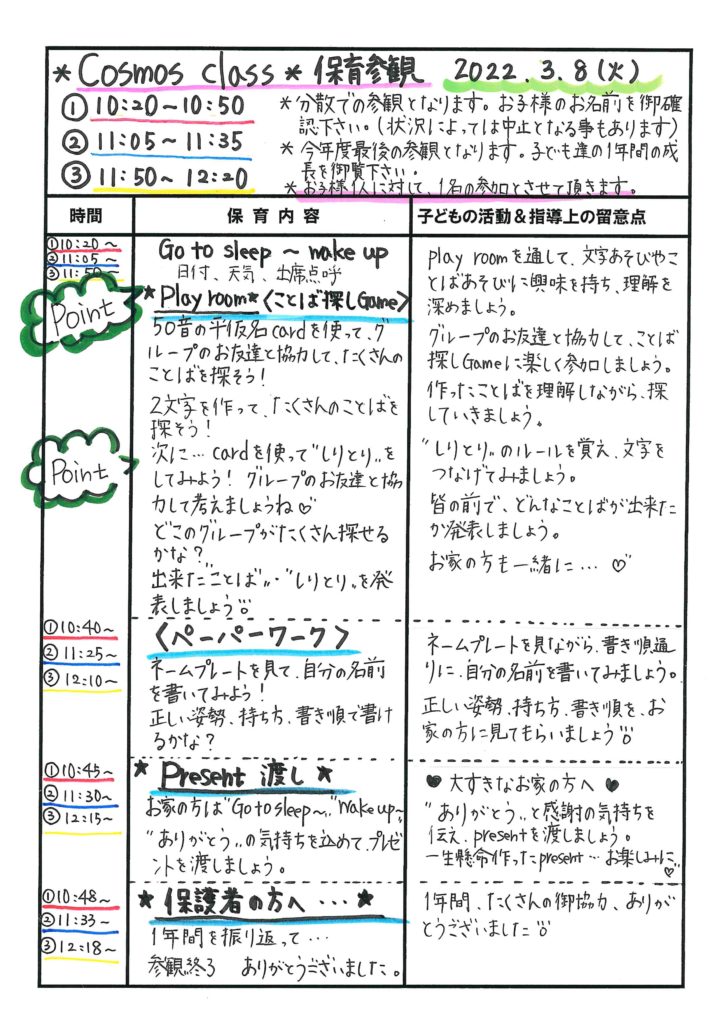 *Cosmos class* 保育参観 2022.3.8(火)
①10:20~10:50
②11:05~11:35
③11:50~12:20
*分散での参観となります。お子様のお名前を御確
認下さい。(状況によっては中止となる事もあります)
*今年度最後の参観となります。子ども達の1年間の成
長を御覧下さい。
*お子様1人に対して、1名の参加とさせて頂きます。
時間 保育内容 子どもの活動&指導上の留意点
①10:20~
②11:05~
③11:50~
Point
Point
Go to sleep ~ wake up
日付、天気、出席点呼
*Play room*〈ことば探しGame〉
50音の平仮名cardを使って、グ
ループのお友達と協力して、たくさんの
ことばを探そう!
2文字を作って、たくさんのことばを
探そう!
次に…cardを使って"しりとり"を
してみよう! グループのお友達と協
力して考えましょうね♡
どこのグループがたくさん探せる
かな?
出来た"ことば"・"しりとり"を発
表しましょう
play roomを通して、文字あそびやこ
とばあそびに興味を持ち、理解を
深めましょう。
グループのお友達と協力して、ことば
探しGameに楽しく参加しましょう。
作ったことばを理解しながら、探
していきましょう。
"しりとり"のルールを覚え、文字を
つなげてみましょう。
皆の前で、どんなことばが出来た
か発表しましょう。
お家の方も一緒に…♡
①10:40~
②11:25~
③12:10~
〈ペーパーワーク〉
ネームプレートを見て、自分の名前
を書いてみよう!
正しい姿勢、持ち方、書き順で書け
るかな?
ネームプレートを見ながら、書き順通
りに、自分の名前を書いてみましょう。
正しい姿勢、持ち方、書き順を、お
家の方に見てもらいましょう
①10:45~
②11:30~
③12:15~
★Present 渡し★
お家の方は"Go to sleep~""Wake up~"
"ありがとう"の気持ちを込めて、プレゼ
ントを渡しましょう。
♥大すきなお家の方へ♥
"ありがとう"と感謝の気持ちを
伝え、presentを渡しましょう。
一生懸命作ったpresent…お楽しみに♡
①10:48~
②11:33~
③12:18~
★保護者の方へ…★
1年間を振り返って…
参観終了 ありがとうございました。
1年間、たくさんの御協力、ありが
とうございました